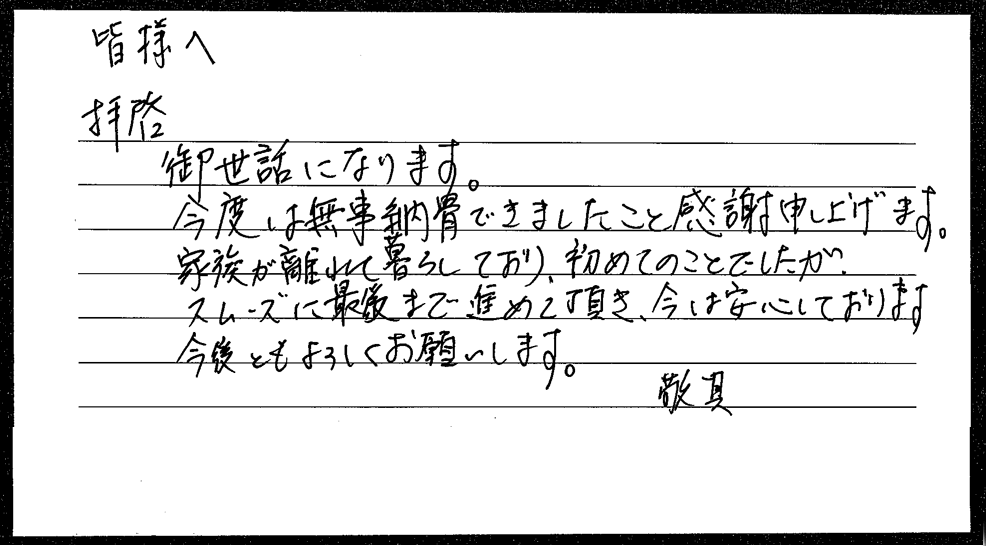 皆様へ
拝啓
御世話になります。
今度は無事納骨できましたこと感謝申し上げます。
家族が離れて暮らしており、初めてのことでしたが、
スムーズに最後まで進めて頂き、今は安心しております
今後ともよろしくお願いします。
敬具